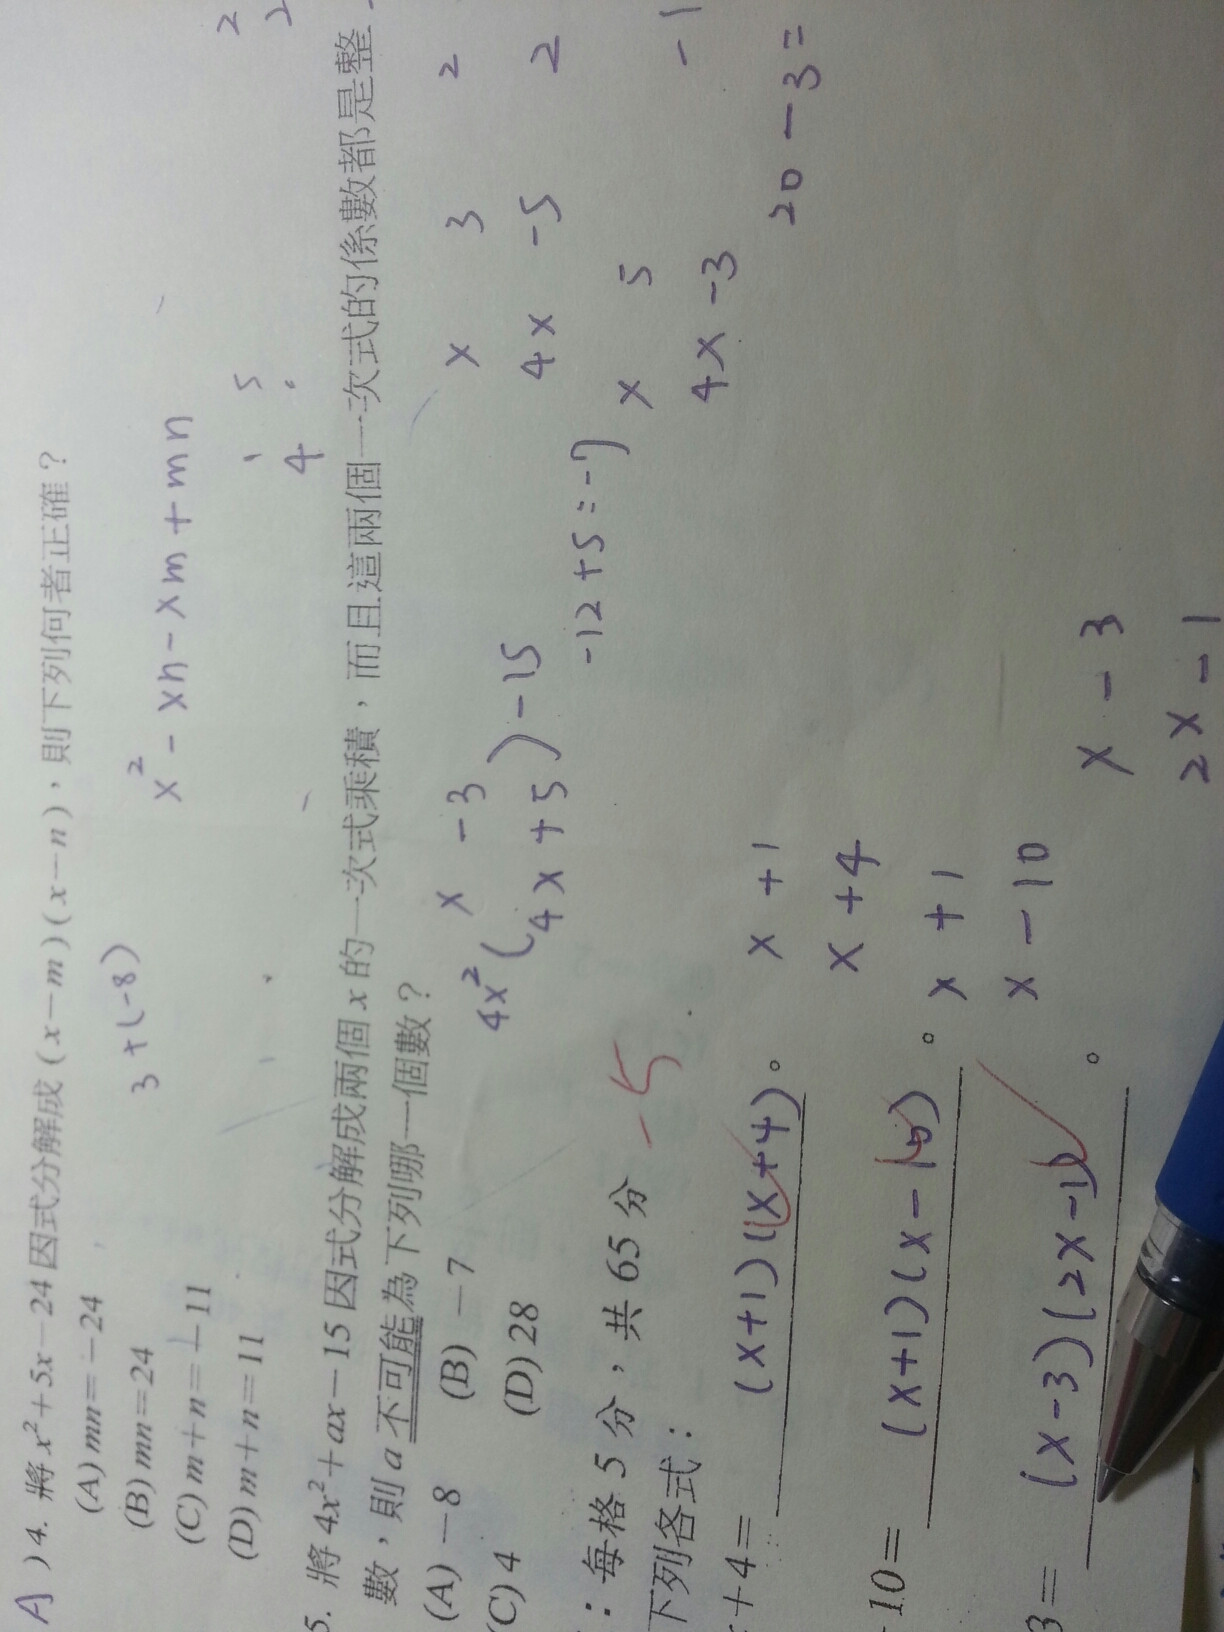 A ) 4. 將 x²+5x-24 因式分解成 (x-m)(x-n)，則下列何者正確？
(A) mn=-24
3+(-8)
(B) mn=24
x²-xn-xm+mn
(C) m+n=-11
(D) m+n=11
5. 將 4x²+ax-15 因式分解成兩個 x 的一次式乘積，而且這兩個一次式的係數都是整
數，則 a 不可能為下列哪一個數？
(A) -8
(B) -7
(C) 4
(D) 28
x -3
4x² (4x+5) -15
-12+5=-7
x 3
4x -5
x 5
4x -3
20-3=
2
2
-1
：每格 5 分，共 65 分
-5
下列各式：
+4= (x+1)(x+4)。
x +1
x +4
10= (x+1)(x-10)。
x +1
x -10
3= (x-3)(2x-1)。
x -3
2x -1